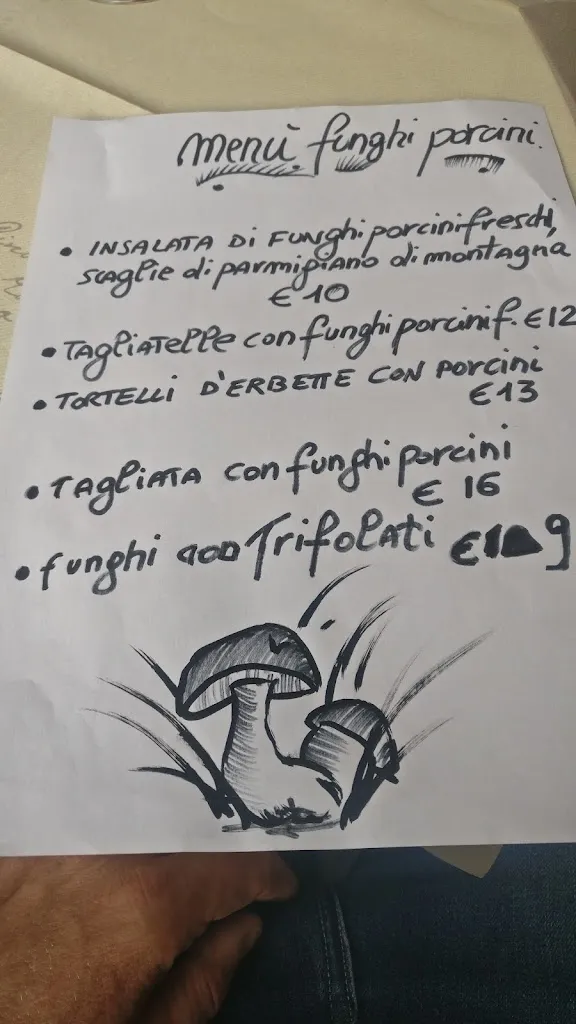 menù funghi porcini.
• INSALATA Di FUNghi porcini freschi,
scaglie di parmigiano di montagna
€ 10
• TAGLIATELLE con funghi porcini f. €12
• TORTELLI D'ERBETTE CON porcini
€13
• TAGLIATA con funghi porcini
€ 16
• funghi Trifolati € 9